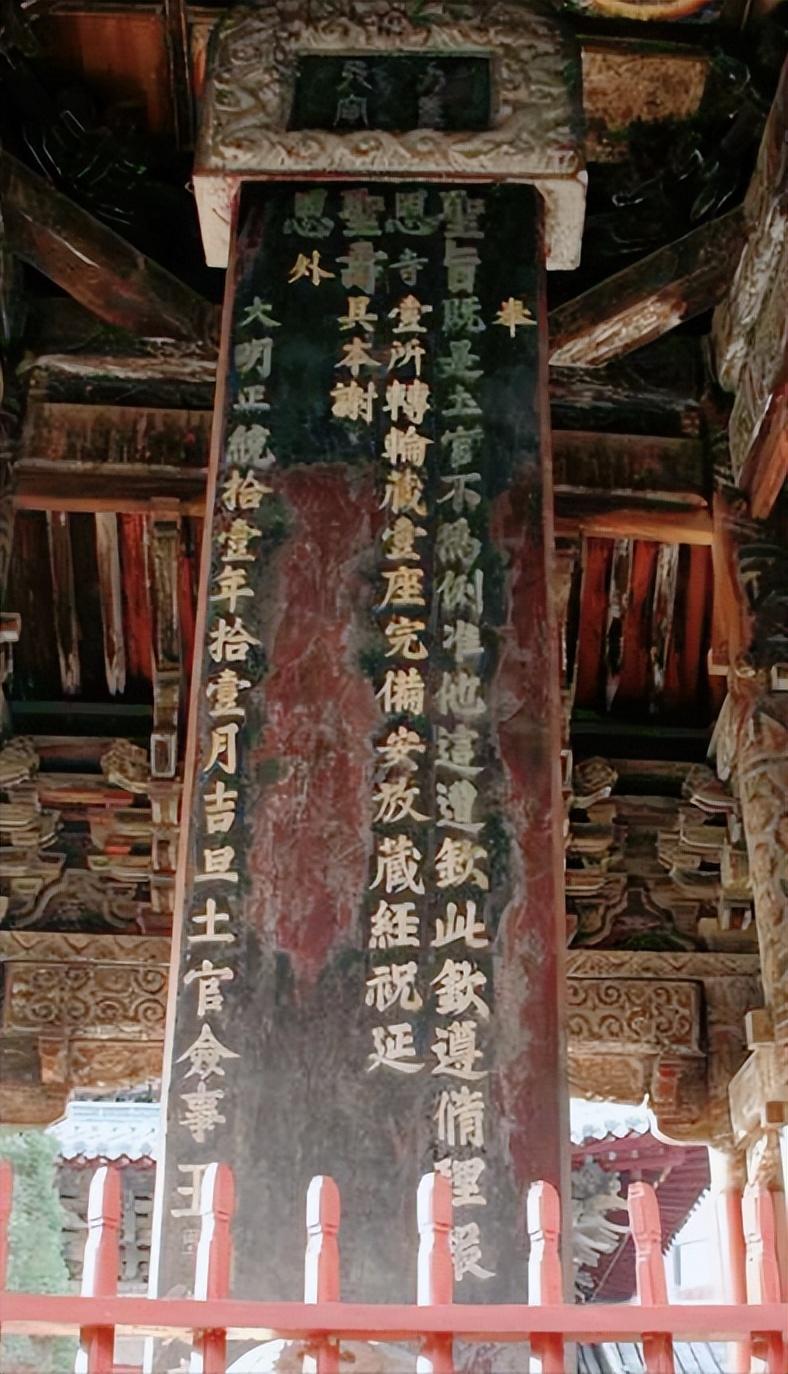 奉
聖旨既是土官不為例准他這遭欽此欽遵脩理報
恩寺壹所轉輪藏壹座完備安放藏經祝延
聖壽具本謝
恩外
大明正統拾壹年拾壹月吉旦土官僉事王